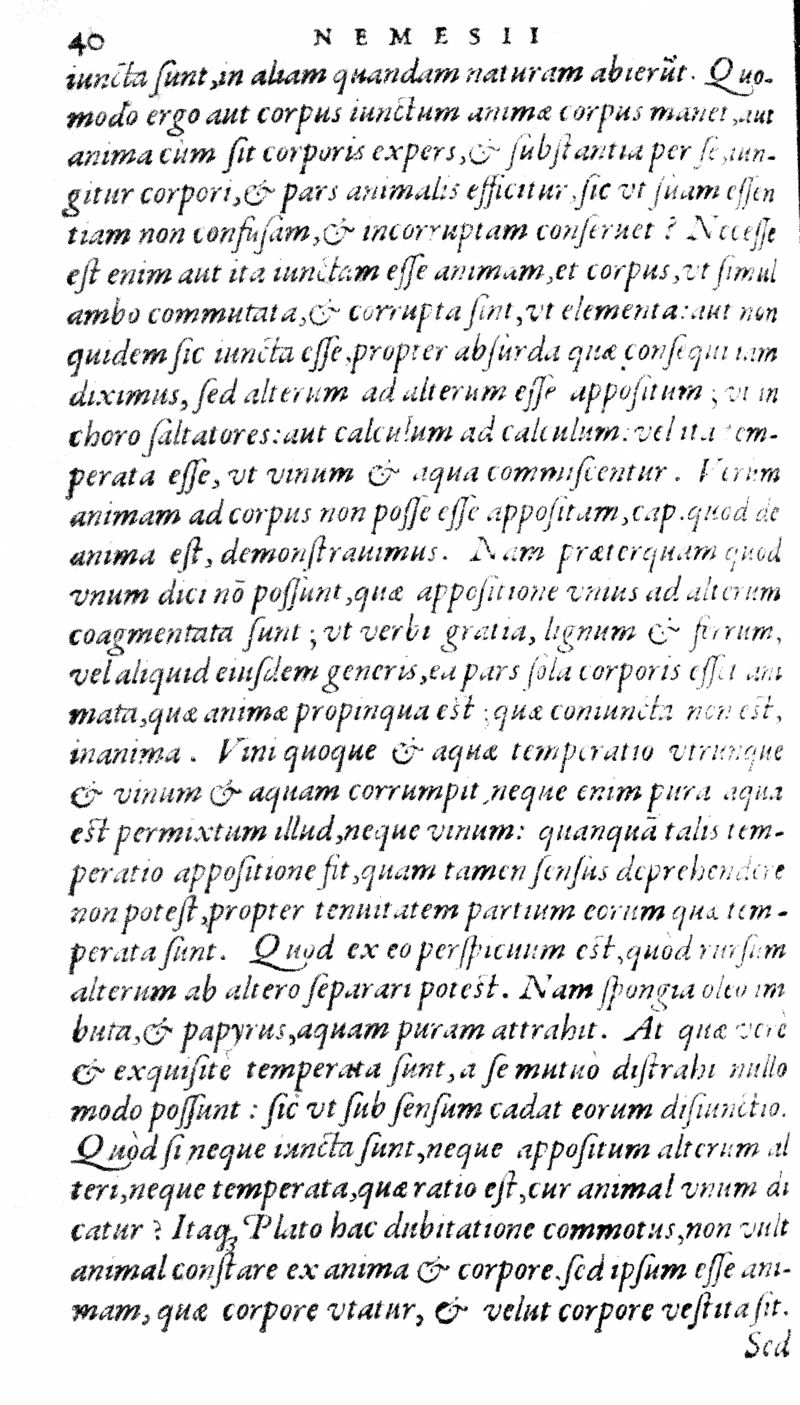 40 NEMESII
iuncta sunt, in aliam quandam naturam abierũt. Quo-
modo ergo aut corpus iunctum animæ corpus manet, aut
anima cùm sit corporis expers, & substantia per se, iun-
gitur corpori, & pars animalis efficitur, sic vt suam essen
tiam non confusam, & incorruptam conseruet? Necesse
est enim aut ita iunctam esse animam, et corpus, vt simul
ambo commutata, & corrupta sint, vt elementa: aut non
quidem sic iuncta esse, propter absurda quæ consequi iam
diximus, sed alterum ad alterum esse appositum; vt in
choro saltatores: aut calculum ad calculum: vel ita tem-
perata esse, vt vinum & aqua commiscentur. Verum
animam ad corpus non posse esse appositam, cap. quod de
anima est, demonstrauimus. Nam præterquam quod
vnum dici nõ possunt, quæ appositione vnius ad alterum
coagmentata sunt; vt verbi gratia, lignum & ferrum,
vel aliquid eiusdem generis, ea pars sola corporis esset ani
mata, quæ animæ propinqua est; quæ coniuncta non est,
inanima. Vini quoque & aquæ temperatio vtrunque
& vinum & aquam corrumpit, neque enim pura aqua
est permixtum illud, neque vinum: quanquã talis tem-
peratio appositione fit, quam tamen sensus deprehendere
non potest, propter tenuitatem partium eorum quæ tem-
perata sunt. Quod ex eo perspicuum est, quòd rursum
alterum ab altero separari potest. Nam spongia oleo im
buta, & papyrus, aquam puram attrahit. At quæ verè
& exquisitè temperata sunt, a se mutuò distrahi nullo
modo possunt: sic vt sub sensum cadat eorum disiunctio.
Quòd si neque iuncta sunt, neque appositum alterum al
teri, neque temperata, quæ ratio est, cur animal vnum di
catur? Itaq; Plato hac dubitatione commotus, non vult
animal constare ex anima & corpore. sed ipsum esse ani-
mam, quæ corpore vtatur, & velut corpore vestita sit.
Sed